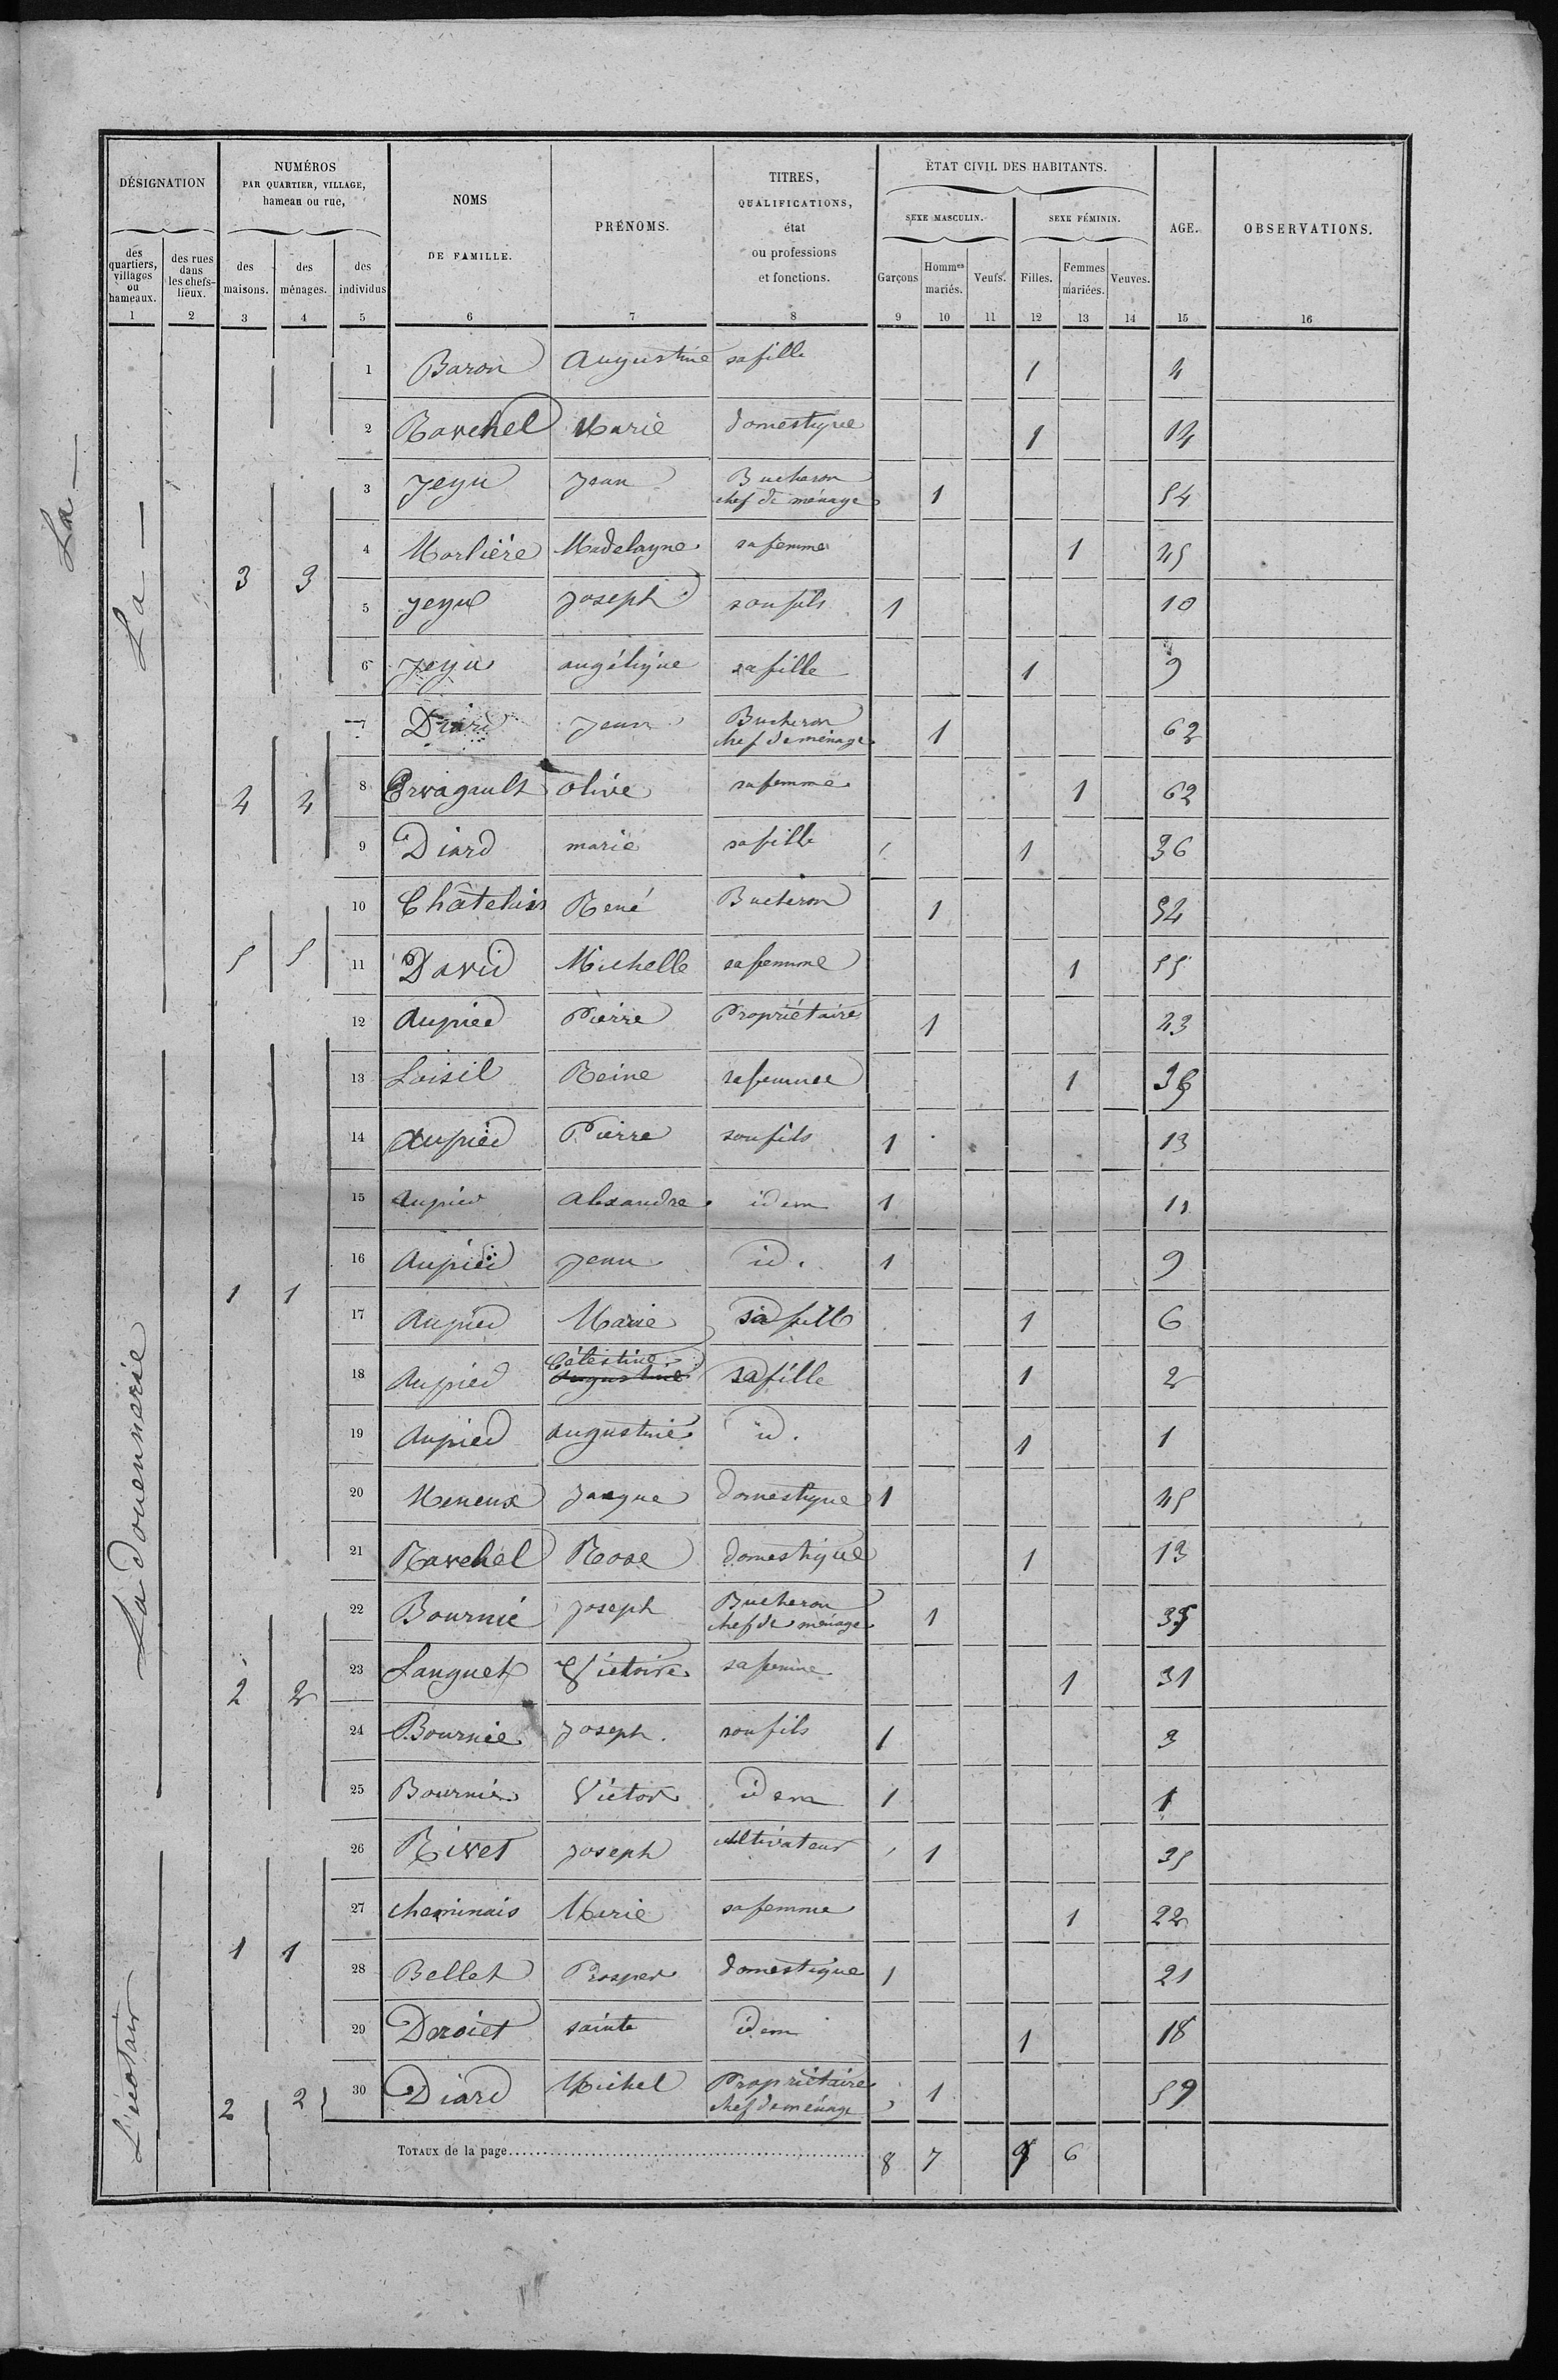 La —
DÉSIGNATION
NUMÉROS
PAR QUARTIER, VILLAGE,
hameau ou rue,
NOMS
DE FAMILLE.
PRÉNOMS.
TITRES,
QUALIFICATIONS,
état
ou professions
et fonctions.
ÉTAT CIVIL DES HABITANTS.
SEXE MASCULIN.
SEXE FÉMININ.
AGE.
OBSERVATIONS.
des quartiers, villages ou hameaux.
des rues dans les chefs-lieux.
des maisons.
des ménages.
des individus
Garçons
Hommes mariés.
Veufs.
Filles.
Femmes mariées.
Veuves.
1 2 3 4 5 6 7 8 9 10 11 12 13 14 15 16
La —
1 Baron Augustine sa fille 1 4
2 Ravchel Marie domestique 1 14
3 Jeyu Jean Bucheron chef de ménage 1 54
3 3
4 Morlière Madelayne sa femme 1 45
5 jeyu Joseph son fils 1 10
6 Jeyu angélique sa fille 1 9
7 Diard Jean Bucheron chef de ménage 1 62
4 4
8 Ervagault olive sa femme 1 62
9 Diard marie sa fille 1 36
10 Châtelais René Bucheron 1 52
5 5
11 David Michelle sa femme 1 55
12 Aupied Pierre Propriétaire 1 43
La douennerie
13 Loisil Reine sa femme 1 36
14 Aupied Pierre son fils 1 13
15 Aupied Alexandre idem 1 11
16 Aupied Jean id. 1 9
1 1
17 Aupied Marie sa fille 1 6
18 Aupied Célestine Augustine sa fille 1 2
19 Aupied augustine id. 1 1
20 Meneux Jacque domestique 1 45
21 Ravchel Rose domestique 1 13
22 Bournié Joseph Bucheron chef de ménage 1 35
2 2
23 Languet Victoire sa femme 1 31
24 Bournie Joseph. son fils 1 3
25 Bournie Victor idem 1 1
26 Rivet Joseph cultivateur 1 35
27 cheminais Marie sa femme 1 22
1 1
28 Bellet Prosper domestique 1 21
29 Deroiet sainte idem 1 18
2 2
30 Diard Michel Propriétaire chef de ménage 1 59
TOTAUX de la page 8 7 9 6